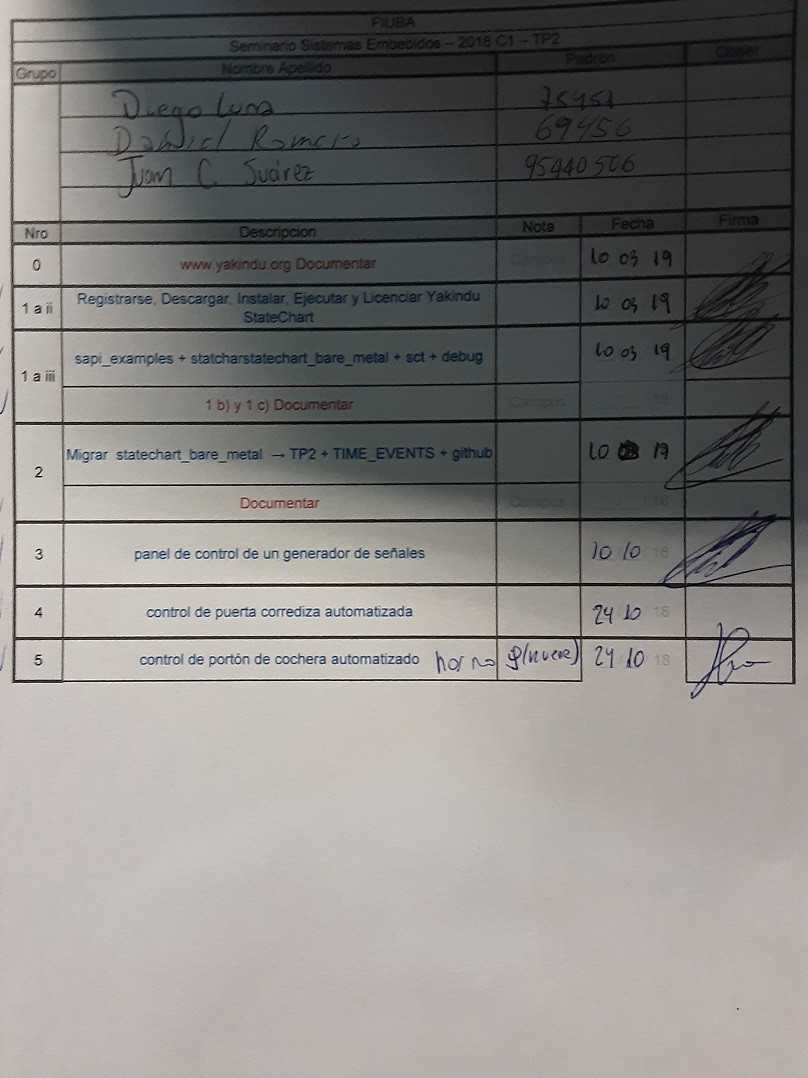 FIUBA
Seminario Sistemas Embebidos – 2018 C1 – TP2
Grupo Nombre Apellido Padron Obser
Diego Luna 75451
Daniel Romero 69456
Juan C. Suárez 95440506
Nro Descripcion Nota Fecha Firma
0 www.yakindu.org Documentar Campus 10 03 19
1 a ii Registrarse, Descargar, Instalar, Ejecutar y Licenciar Yakindu StateChart 10 03 19
1 a iii sapi_examples + statcharstatechart_bare_metal + sct + debug 10 03 19
1 b) y 1 c) Documentar Campus / / 18
2 Migrar statechart_bare_metal → TP2 + TIME_EVENTS + github 10 03 19
Documentar Campus / / 18
3 panel de control de un generador de señales 10/10 18
4 control de puerta corrediza automatizada 24 10 18
5 control de portón de cochera automatizado horno 9(nueve) 24/10/18